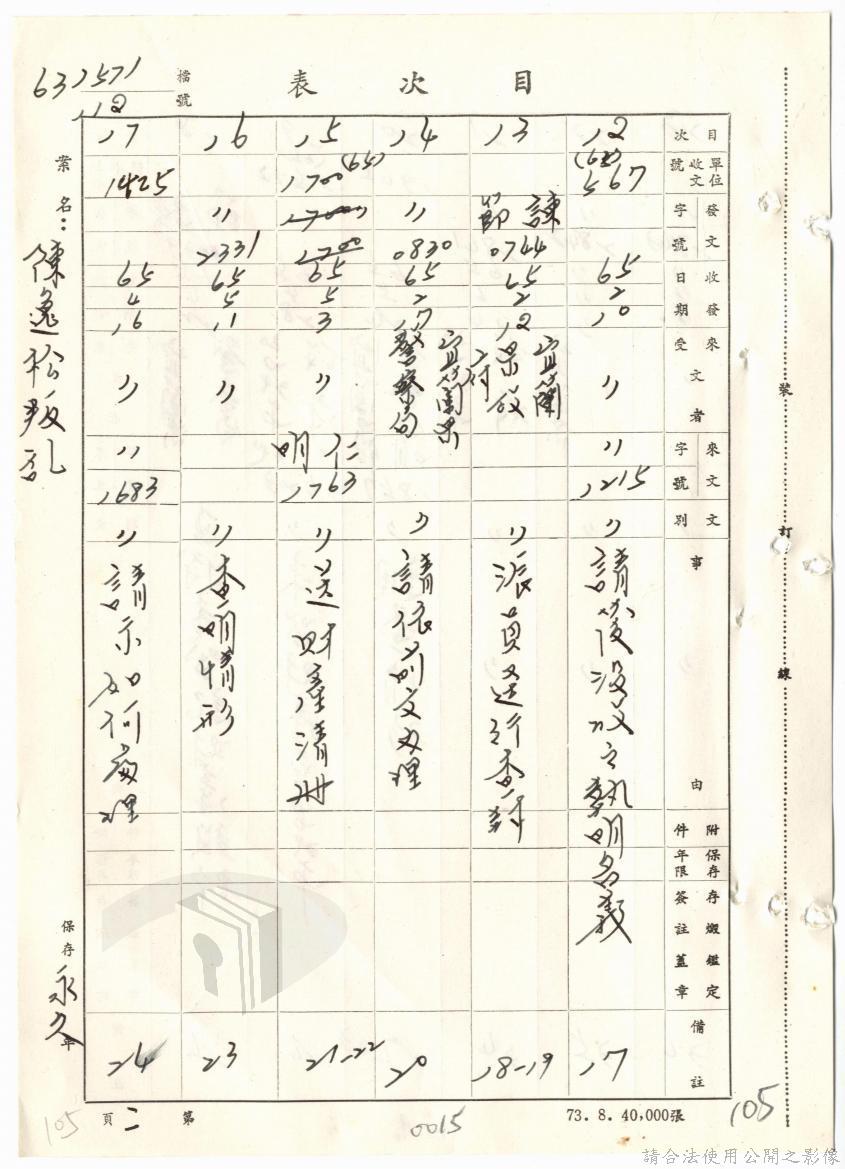 目次表
檔號
631571
12
案名：陳逸松叛乱
保存永久年
目次
單位收文號
發文字號
收發日期
來受文者
來文字號
文別
事由
附件
保存年限
存燬鑑定簽註蓋章
備註
12
567
65
2
10
〃
〃
1215
〃
17
13
諫節
0744
65
2
12
宜蘭
〃
派員逕行查封
18-19
14
〃
0830
65
2
17
宜蘭縣警察局
〃
請依前文办理
20
15
(65)
1700
1700
65
5
3
〃
仁明
1763
〃
送財產清冊
21-22
16
〃
2331
65
5
11
〃
〃
查明情形
23
17
1425
65
4
16
〃
〃
1683
〃
請示如何處理
24
裝
訂
線
第二頁
73.8.40,000張
0015
105
105
請合法使用公開之影像